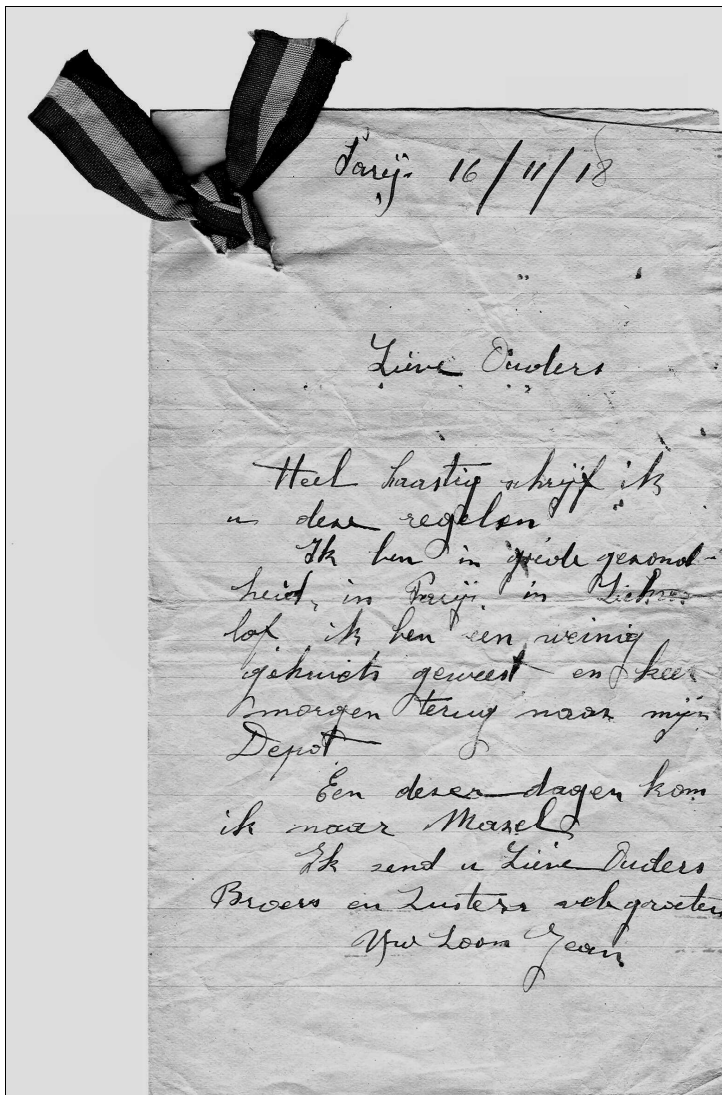 Parijs 16/11/18
Lieve Ouders
Heel haastig schrijf ik
u deze regelen
Ik ben in goede gezond-
heid, in Parijs in
lof ik ben een weinig
gekwets geweest en keer
morgen terug naar mijn
Depot
Een dezer dagen kom
ik naar Mazel
Ik zend u Lieve Ouders
Broers en Zusters vele groeten
Uw Zoon Jean